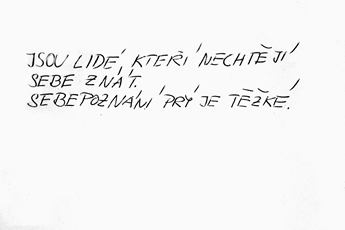 JSOU LIDÉ, KTEŘÍ NECHTĚJÍ
SEBE ZNÁT.
SEBEPOZNÁNÍ PRÝ JE TĚŽKÉ.